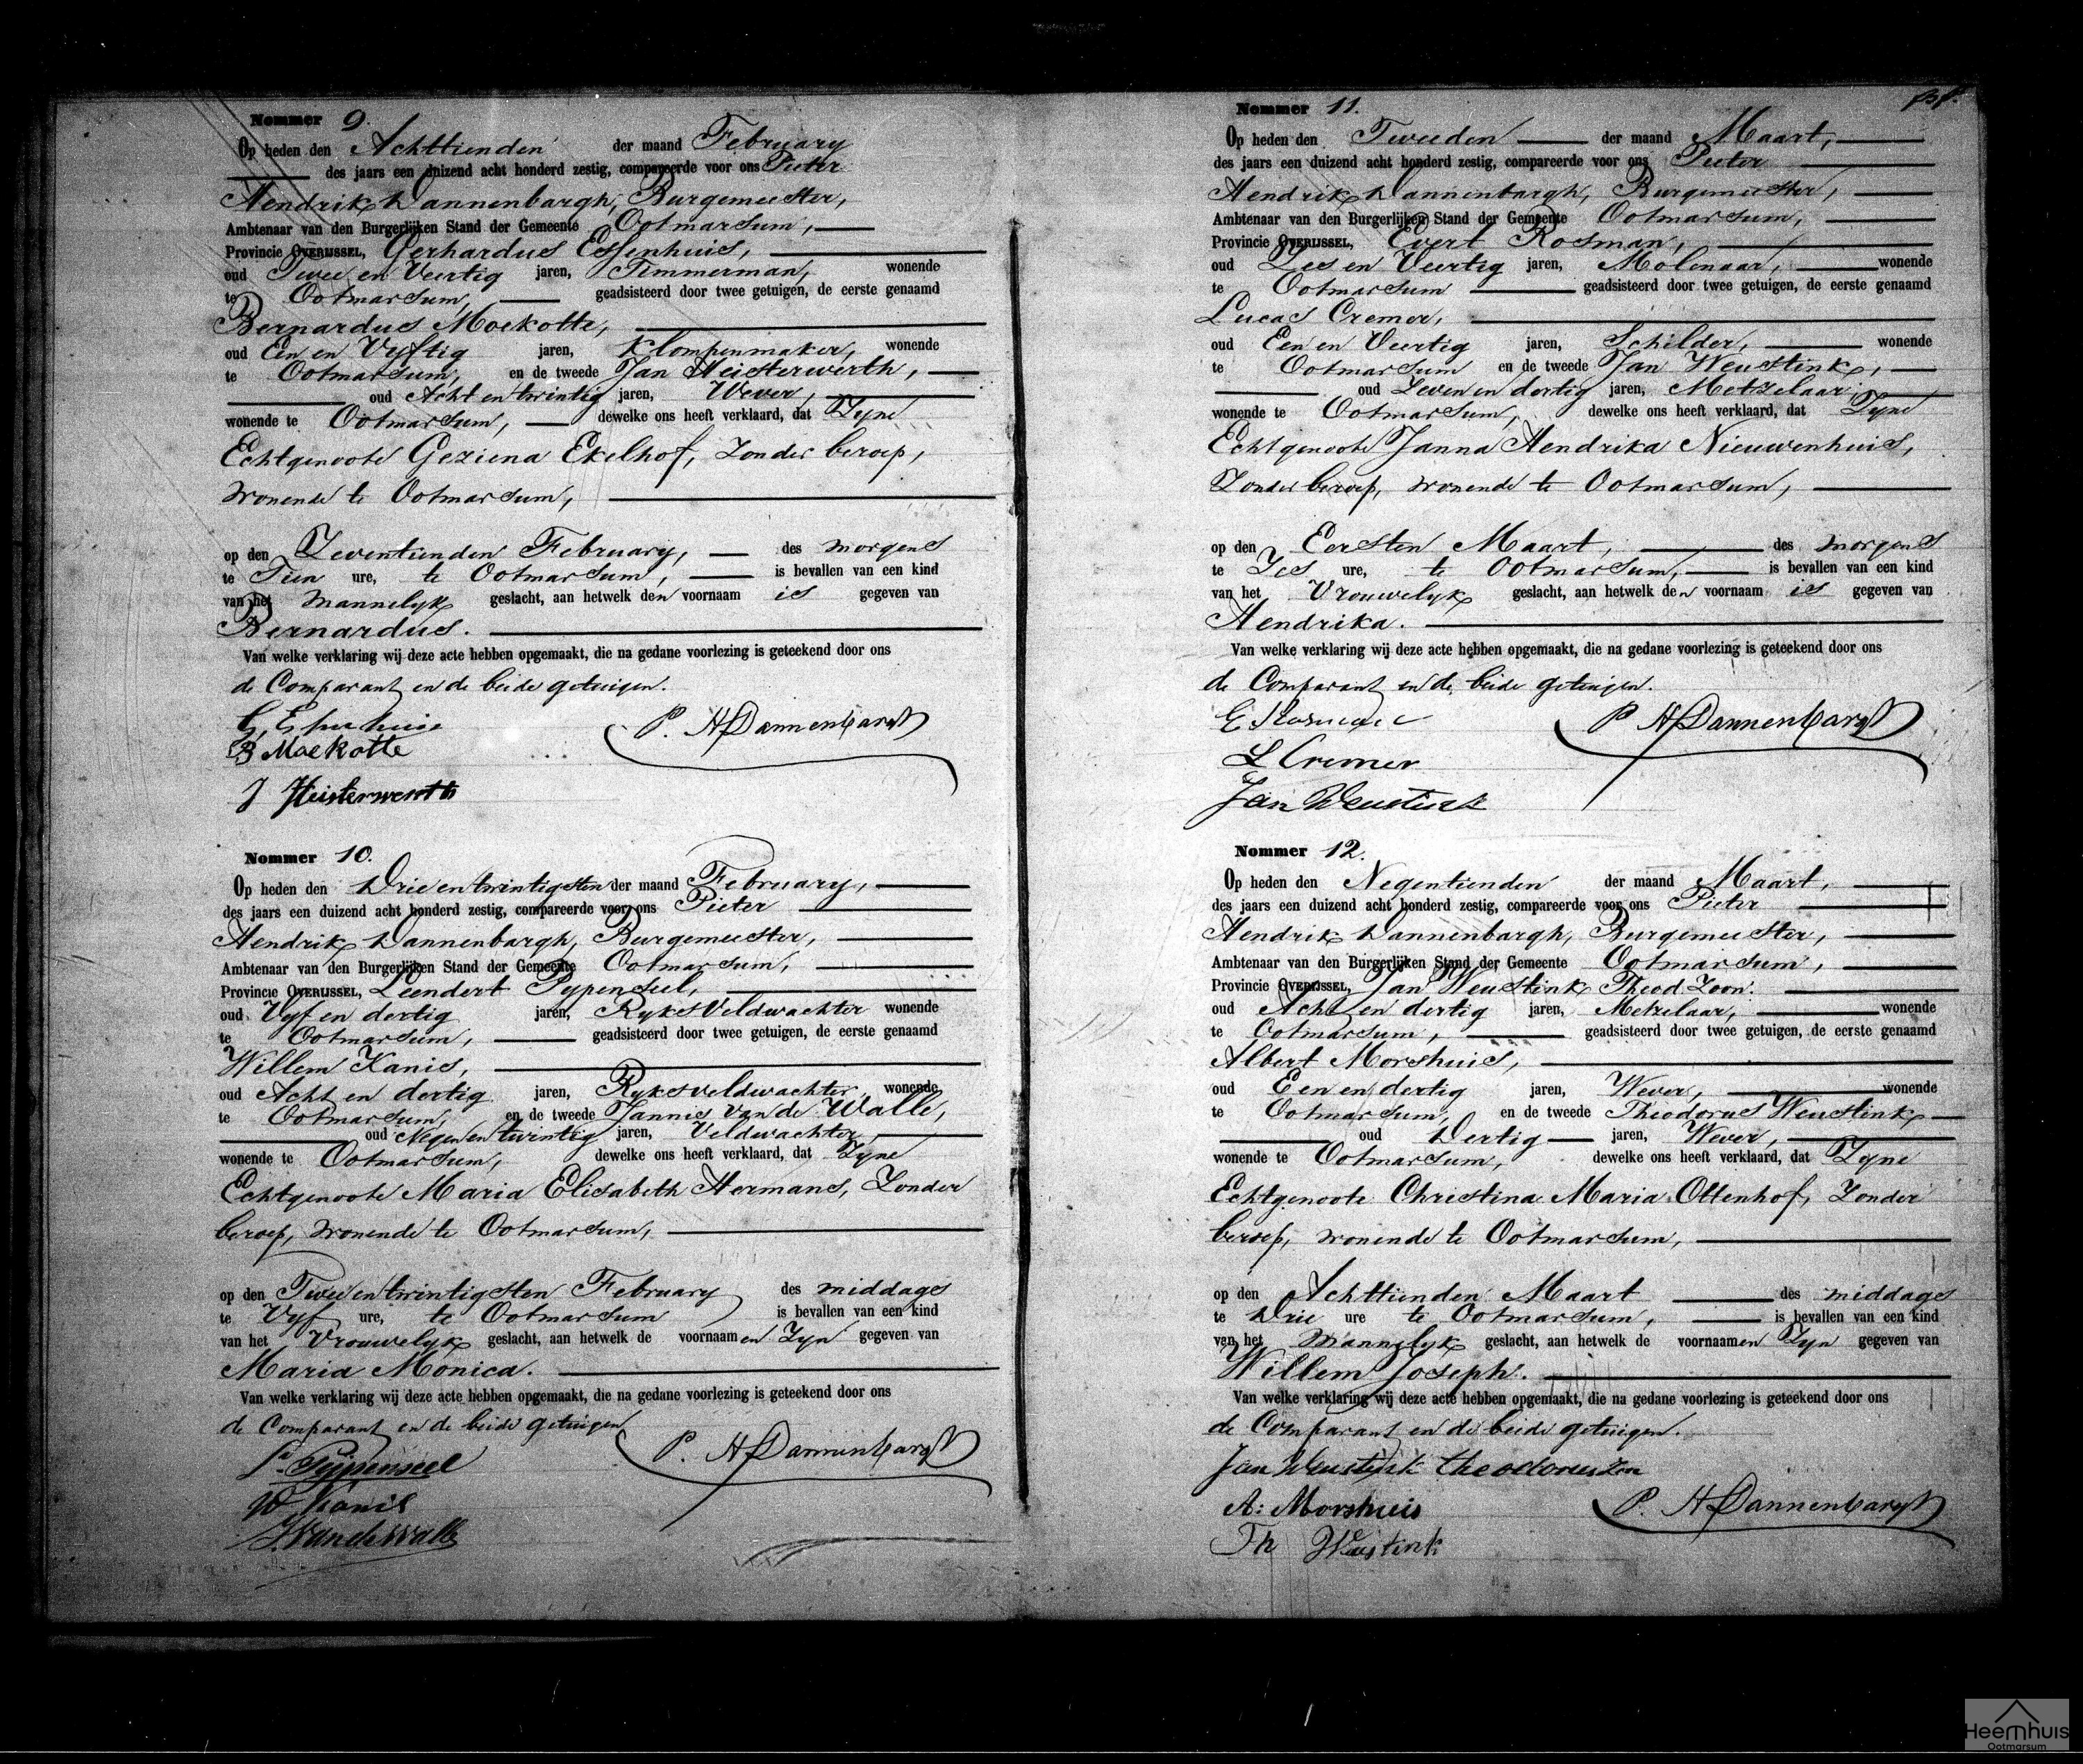 Nommer 9.
Op heden den Achttienden der maand February
des jaars een duizend acht honderd zestig, compareerde voor ons Pieter
Hendrik Dannenbargh, Burgemeester,
Ambtenaar van den Burgerlijken Stand der Gemeente Ootmarsum,
Provincie OVERIJSSEL, Gerhardus Essenhuis,
oud Twee en Veertig jaren, Timmerman, wonende
te Ootmarsum, geadsisteerd door twee getuigen, de eerste genaamd
Bernardus Moekotte,
oud Een en Vyftig jaren, Klompenmaker, wonende
te Ootmarsum, en de tweede Jan Heisterwerth,
oud Acht en twintig jaren, Wever,
wonende te Ootmarsum, dewelke ons heeft verklaard, dat Zyne
Echtgenoote Geziena Ekelhof, Zonder beroep,
wonende te Ootmarsum,
op den Zeventienden February, des morgens
te Tien ure, te Ootmarsum, is bevallen van een kind
van het Mannelyk geslacht, aan hetwelk den voornaam is gegeven van
Bernardus.
Van welke verklaring wij deze acte hebben opgemaakt, die na gedane voorlezing is geteekend door ons
de Comparant en de beide getuigen.
P. H Dannenbargh
B Moekotte
J Heisterwerth
Nommer 10.
Op heden den Drie en twintigsten der maand February,
des jaars een duizend acht honderd zestig, compareerde voor ons Pieter
Hendrik Dannenbargh, Burgemeester,
Ambtenaar van den Burgerlijken Stand der Gemeente Ootmarsum,
Provincie OVERIJSSEL, Leendert Pypenseel,
oud Vyf en dertig jaren, RyksVeldwachter wonende
te Ootmarsum, geadsisteerd door twee getuigen, de eerste genaamd
Willem Kanis,
oud Acht en dertig jaren, Ryksveldwachter, wonende
te Ootmarsum, en de tweede Jannis van de Walle,
oud Negen en twintig jaren, Veldwachter,
wonende te Ootmarsum, dewelke ons heeft verklaard, dat Zyne
Echtgenoote Maria Elisabeth Hermans, Zonder
beroep, wonende te Ootmarsum,
op den Twee en twintigsten February des middags
te Vyf ure, te Ootmarsum is bevallen van een kind
van het Vrouwelyk geslacht, aan hetwelk de voornaamen Zyn gegeven van
Maria Monica.
Van welke verklaring wij deze acte hebben opgemaakt, die na gedane voorlezing is geteekend door ons
de Comparant en de beide getuigen
P. H Dannenbargh
Pijpenseel
W Kanis
J. van de Walle
Nommer 11.
Op heden den Tweeden der maand Maart,
des jaars een duizend acht honderd zestig, compareerde voor ons Pieter
Hendrik Dannenbargh, Burgemeester,
Ambtenaar van den Burgerlijken Stand der Gemeente Ootmarsum,
Provincie OVERIJSSEL, Evert Rosman,
oud Zes en Veertig jaren, Molenaar, wonende
te Ootmarsum geadsisteerd door twee getuigen, de eerste genaamd
Lucas Cremer,
oud Een en Veertig jaren, Schilder, wonende
te Ootmarsum en de tweede Jan Weustink,
oud Zeven en dertig jaren, Metzelaar,
wonende te Ootmarsum, dewelke ons heeft verklaard, dat Zyne
Echtgenoote Janna Hendrika Nieuwenhuis,
Zonder beroep, wonende te Ootmarsum,
op den Eersten Maart, des morgens
te Zes ure, te Ootmarsum, is bevallen van een kind
van het Vrouwelyk geslacht, aan hetwelk den voornaam is gegeven van
Hendrika.
Van welke verklaring wij deze acte hebben opgemaakt, die na gedane voorlezing is geteekend door ons
de Comparant en de beide getuigen.
E Rosman
P H Dannenbargh
L Cremer
Jan Weustink
Nommer 12.
Op heden den Negentienden der maand Maart,
des jaars een duizend acht honderd zestig, compareerde voor ons Pieter
Hendrik Dannenbargh, Burgemeester,
Ambtenaar van den Burgerlijken Stand der Gemeente Ootmarsum,
Provincie OVERIJSSEL, Jan Weustink Theod. Zoon.
oud Acht en dertig jaren, Metzelaar, wonende
te Ootmarsum, geadsisteerd door twee getuigen, de eerste genaamd
Albert Morshuis,
oud Een en dertig jaren, Wever, wonende
te Ootmarsum, en de tweede Theodorus Weustink
oud Dertig jaren, Wever,
wonende te Ootmarsum, dewelke ons heeft verklaard, dat Zyne
Echtgenoote Christina Maria Ottenhof, Zonder
beroep, wonende te Ootmarsum,
op den Achttienden Maart des middags
te Drie ure te Ootmarsum, is bevallen van een kind
van het Mannelyk geslacht, aan hetwelk de voornaamen Zyn gegeven van
Willem Joseph.
Van welke verklaring wij deze acte hebben opgemaakt, die na gedane voorlezing is geteekend door ons
de Comparant en de beide getuigen.
Jan Weustink theodorus zon
A: Morshuis
P. H Dannenbargh
Th Weustink
Heemhuis
Ootmarsum